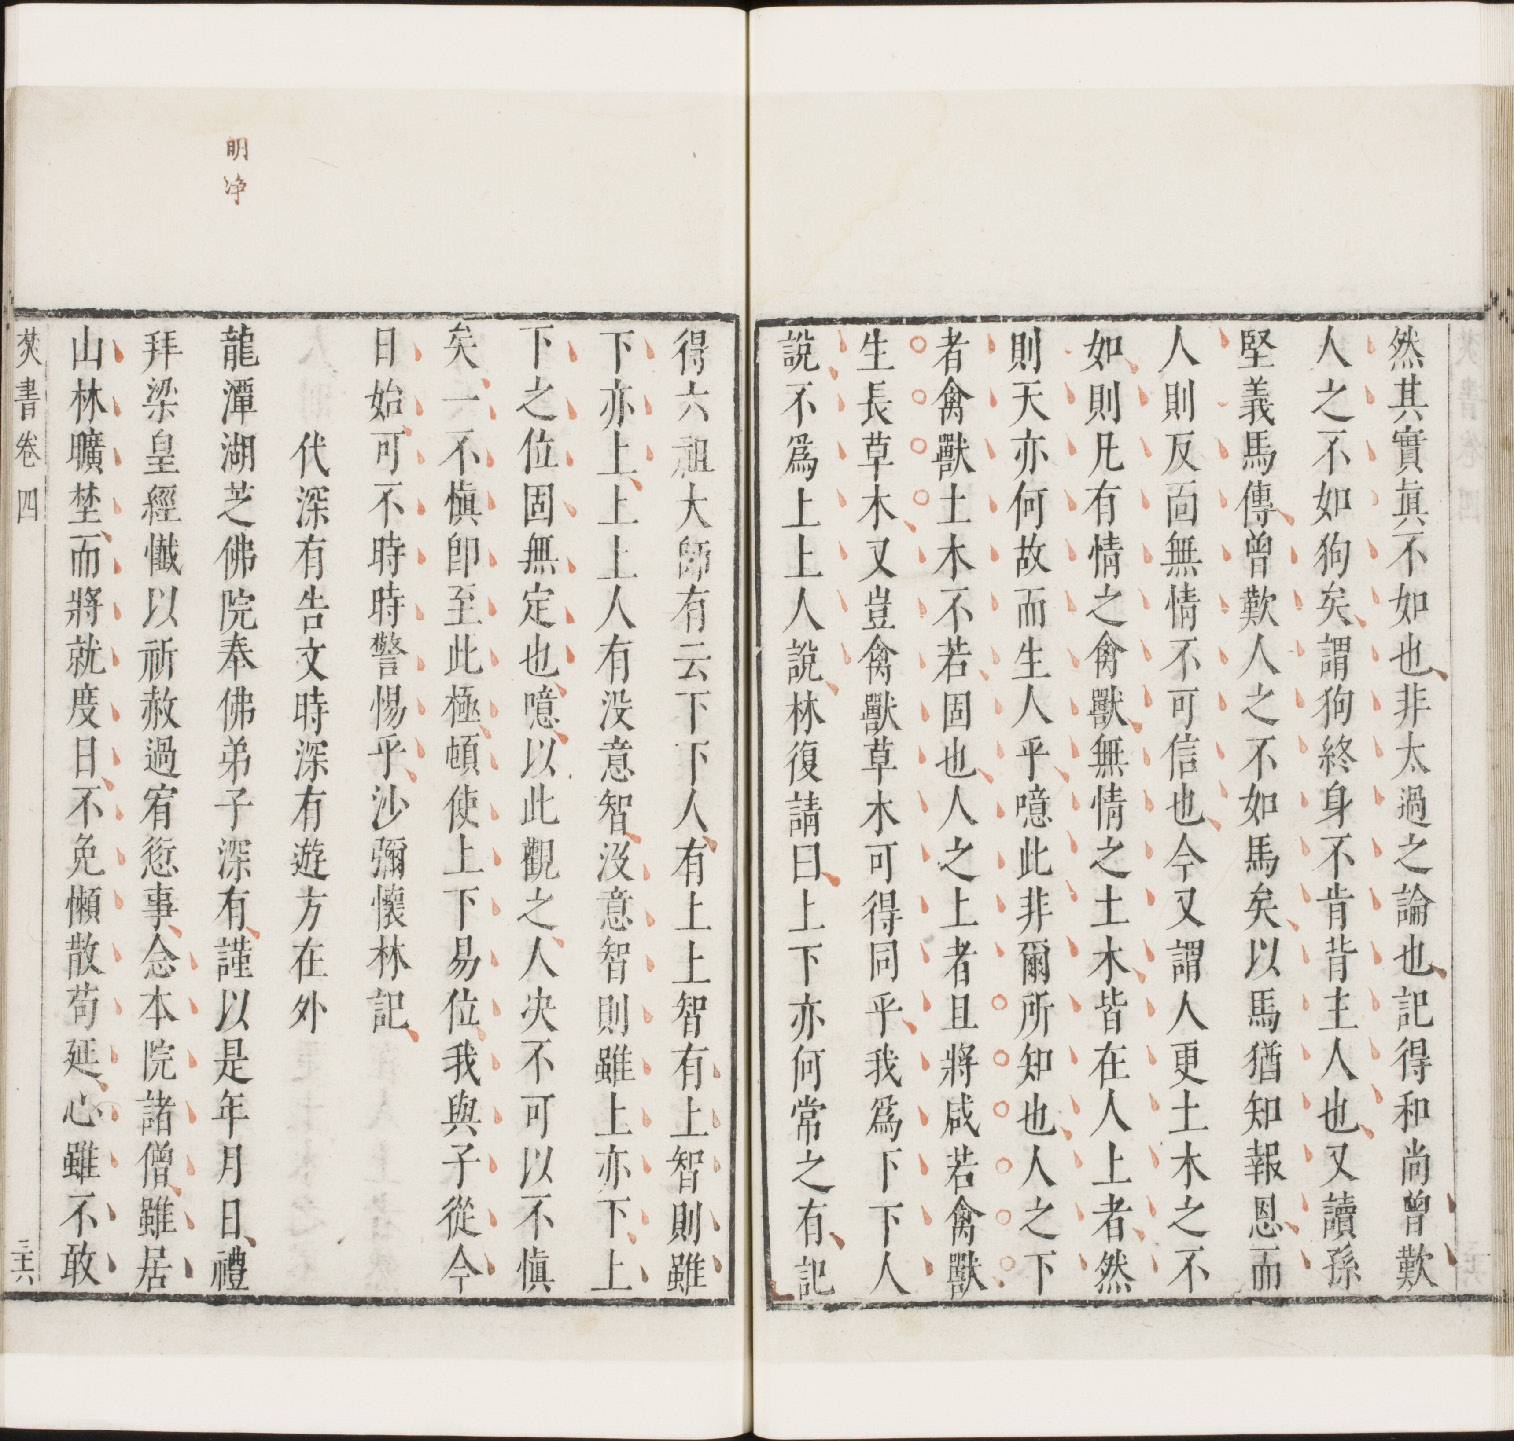 然其實眞不如也非太過之論也記得和尚曾歎
人之不如狗矣謂狗終身不肯背主人也又讀孫
堅義馬傳曾歎人之不如馬矣以馬猶知報恩而
人則反面無情不可信也今又謂人更土木之不
如則凡有情之禽獸無情之土木皆在人上者然
則天亦何故而生人乎噫此非爾所知也人之下
者禽獸土木不若固也人之上者且將咸若禽獸
生長草木又豈禽獸草木可得同乎我爲下下人
說不爲上上人說林復請曰上下亦何常之有記
得六祖大師有云下下人有上上智有上智則雖
下亦上上上人有没意智没意智則雖上亦下上
下之位固無定也噫以此觀之人决不可以不愼
矣一不愼卽至此極頓使上下易位我與子從今
日始可不時時警惕乎沙彌懷林記
代深有告文時深有遊方在外
龍潭湖芝佛院奉佛弟子深有謹以是年月日禮
拜梁皇經懴以祈赦過宥愆事念本院諸僧雖居
山林曠埜而將就度日不免懶散苟延心雖不敢
焚書卷四
三十六
明净